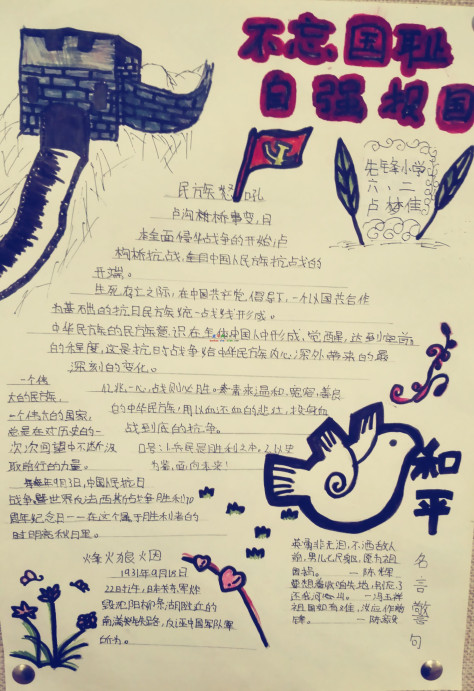 不忘国耻
自强报国
先锋小学
六、二
卢梦佳
民族怒吼
卢沟桥事变,日
本全面侵华战争的开始,卢
沟桥抗战,是自中国人民族抗战的
开端。
生死存亡之际,在中国共产党倡导了,一个以国共合作
为基础的抗日民族统一战线形成。
中华民族的民族意识在全体中国人中形成、觉醒,达到空前
的程度,这是抗日战争给中华民族内心深外带来的最
深刻的变化。
亿兆一心,战则必胜。素来温和、宽容、善良
的中华民族,用以血还血的悲壮,投身血
战到底的抗争。
口号:1.兵民是胜利之本。2.以史
为鉴,面向未来!
一个伟
大的民族,
一个伟大的国家,
总是在对历史的一
次次回望中不断汲
取前行的力量。
每年9月3日,中国人民抗日
战争暨世界反法西斯战争胜利70
周年纪念日——在这个属于胜利者的
时明亮秋日里。
和平
烽火狼烟
1931年9月18日
22时许,日本关东军炸
毁沈阳柳条湖附近的
南满铁路路,反诬中国军队
所为。
英勇非无泪,不洒敌人
前。男儿七尺躯,愿为祖
国捐。 —陈辉
——冯玉祥
名言警句